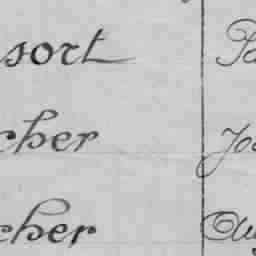 sort Pa
cher Jo
cher Aug